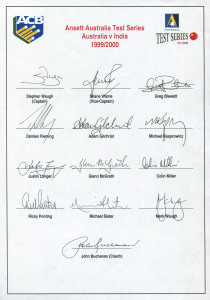 ACB
Ansett Australia Test Series
Australia v India
1999/2000
TEST SERIES
Stephen Waugh
(Captain)
Shane Warne
(Vice-Captain)
Greg Blewett
Damien Fleming
Adam Gilchrist
Michael Kasprowicz
Justin Langer
Glenn McGrath
Colin Miller
Ricky Ponting
Michael Slater
Mark Waugh
John Buchanan (Coach)